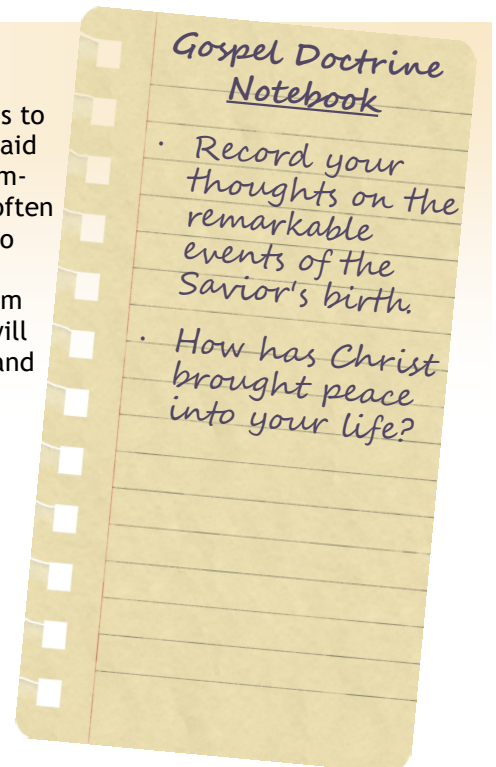 s to
aid
m-
often
o
m
will
and
Gospel Doctrine
Notebook
· Record your
thoughts on the
remarkable
events of the
Savior's birth.
· How has Christ
brought peace
into your life?